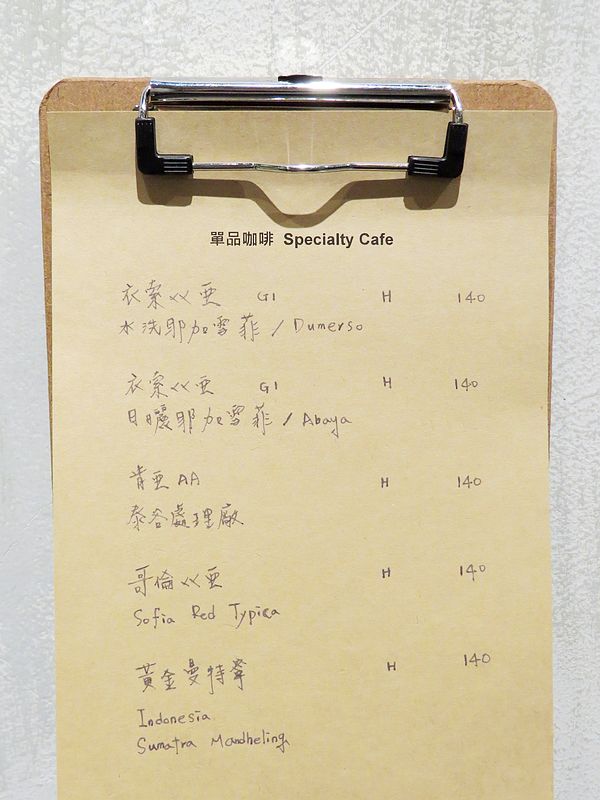 單品咖啡 Specialty Cafe
衣索ㄍㄍ亞 G1 H 140
水洗耶加雪菲 / Dumerso
衣索ㄍㄍ亞 G1 H 140
日曬耶加雪菲 / Abaya
肯亞 AA H 140
泰谷處理廠
哥倫ㄍㄍ亞 H 140
Sofia Red Typica
黃金曼特寧 H 140
Indonesia
Sumatra Mandheling